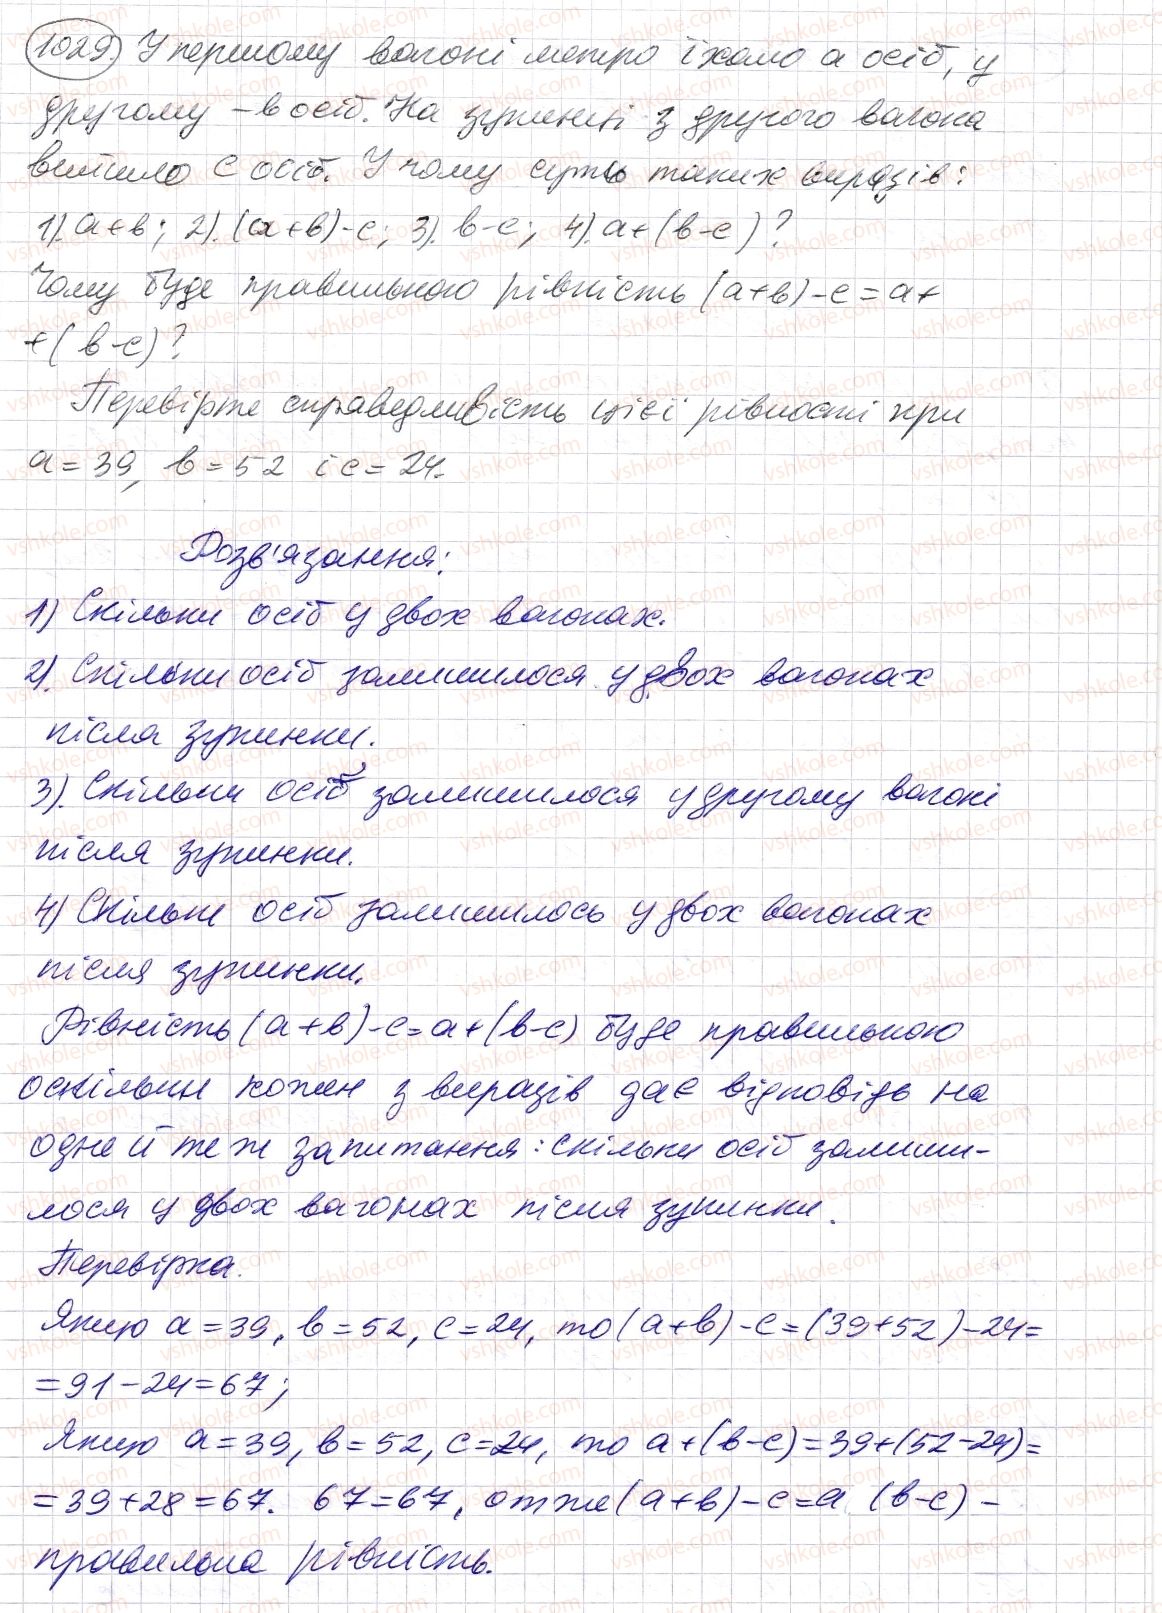 1029. У першому вагоні метро їхало а осіб, у
другому – в осіб. На зупинці з другого вагона
вийшло с осіб. У чому суть таких виразів:
1). а+в; 2). (а+в)-с; 3). в-с; 4). а+(в-с)?
Чому буде правильною рівність (а+в)-с=а+
+(в-с)?
Перевірте справедливість цієї рівності при
а=39, в=52 і с=24.
Розв'язання:
1) Скільки осіб у двох вагонах.
2). Скільки осіб залишилося у двох вагонах
після зупинки.
3). Скільки осіб залишилося у другому вагоні
після зупинки.
4) Скільки осіб залишилось у двох вагонах
після зупинки.
Рівність (а+в)-с=а+(в-с) буде правильною
оскільки кожен з виразів дає відповідь на
одне й теж запитання: скільки осіб залиши-
лося у двох вагонах після зупинки.
Перевірка.
Якщо а=39, в=52, с=24, то (а+в)-с=(39+52)-24=
=91-24=67;
Якщо а=39, в=52, с=24, то а+(в-с)=39+(52-24)=
=39+28=67. 67=67, отже (а+в)-с=а (в-с) –
правильна рівність.